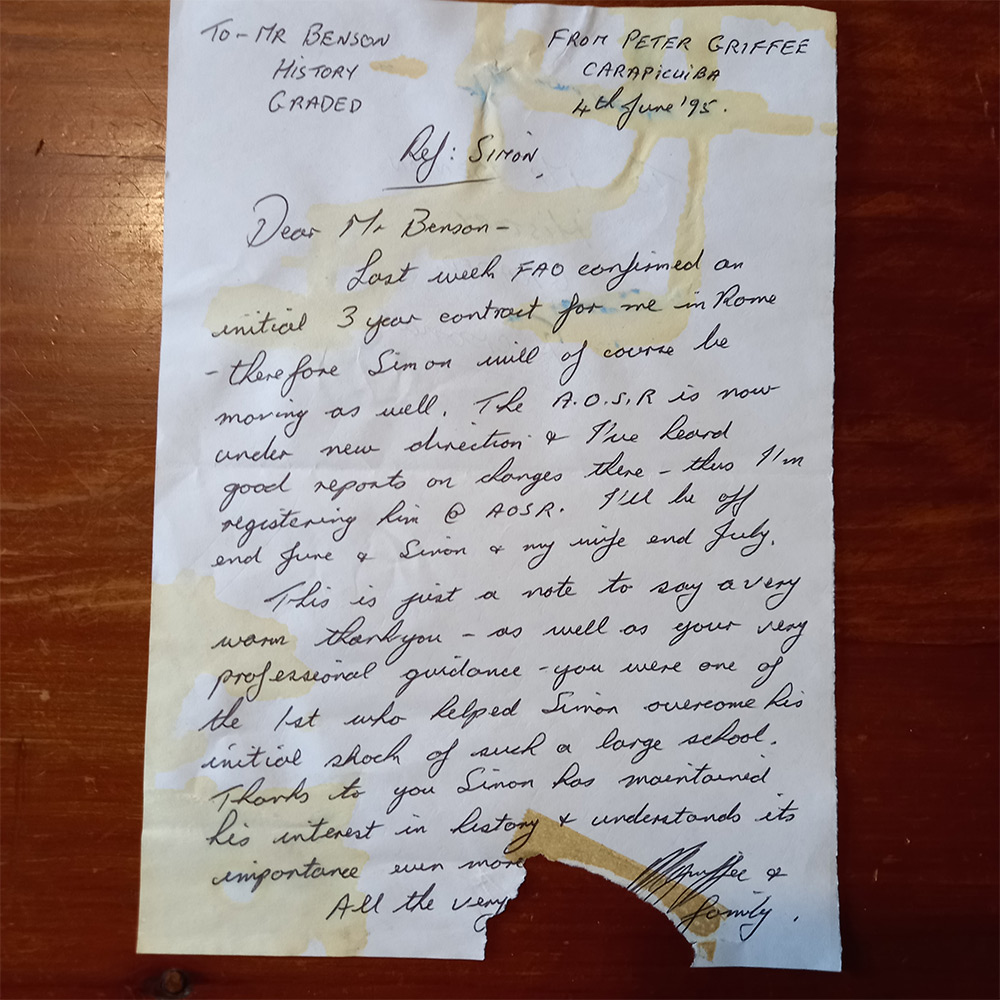 To - MR BENSON
HISTORY
GRADED
FROM PETER GRIFFEE
CARAPICUIBA
4th June '95.
Ref: SIMON
Dear Mr Benson -
Last week FAO confirmed an
initial 3 year contract for me in Rome
- therefore Simon will of course be
moving as well. The A.O.S.R is now
under new direction & I've heard
good reports on changes there - thus I'm
registering him @ AOSR. I'll be off
end June & Simon & my wife end July.
This is just a note to say a very
warm thankyou - as well as your very
professional guidance - you were one of
the 1st who helped Simon overcome his
initial shock of such a large school.
Thanks to you Simon has maintained
his interest in history & understands its
importance even more
All the very
Griffee &
family.